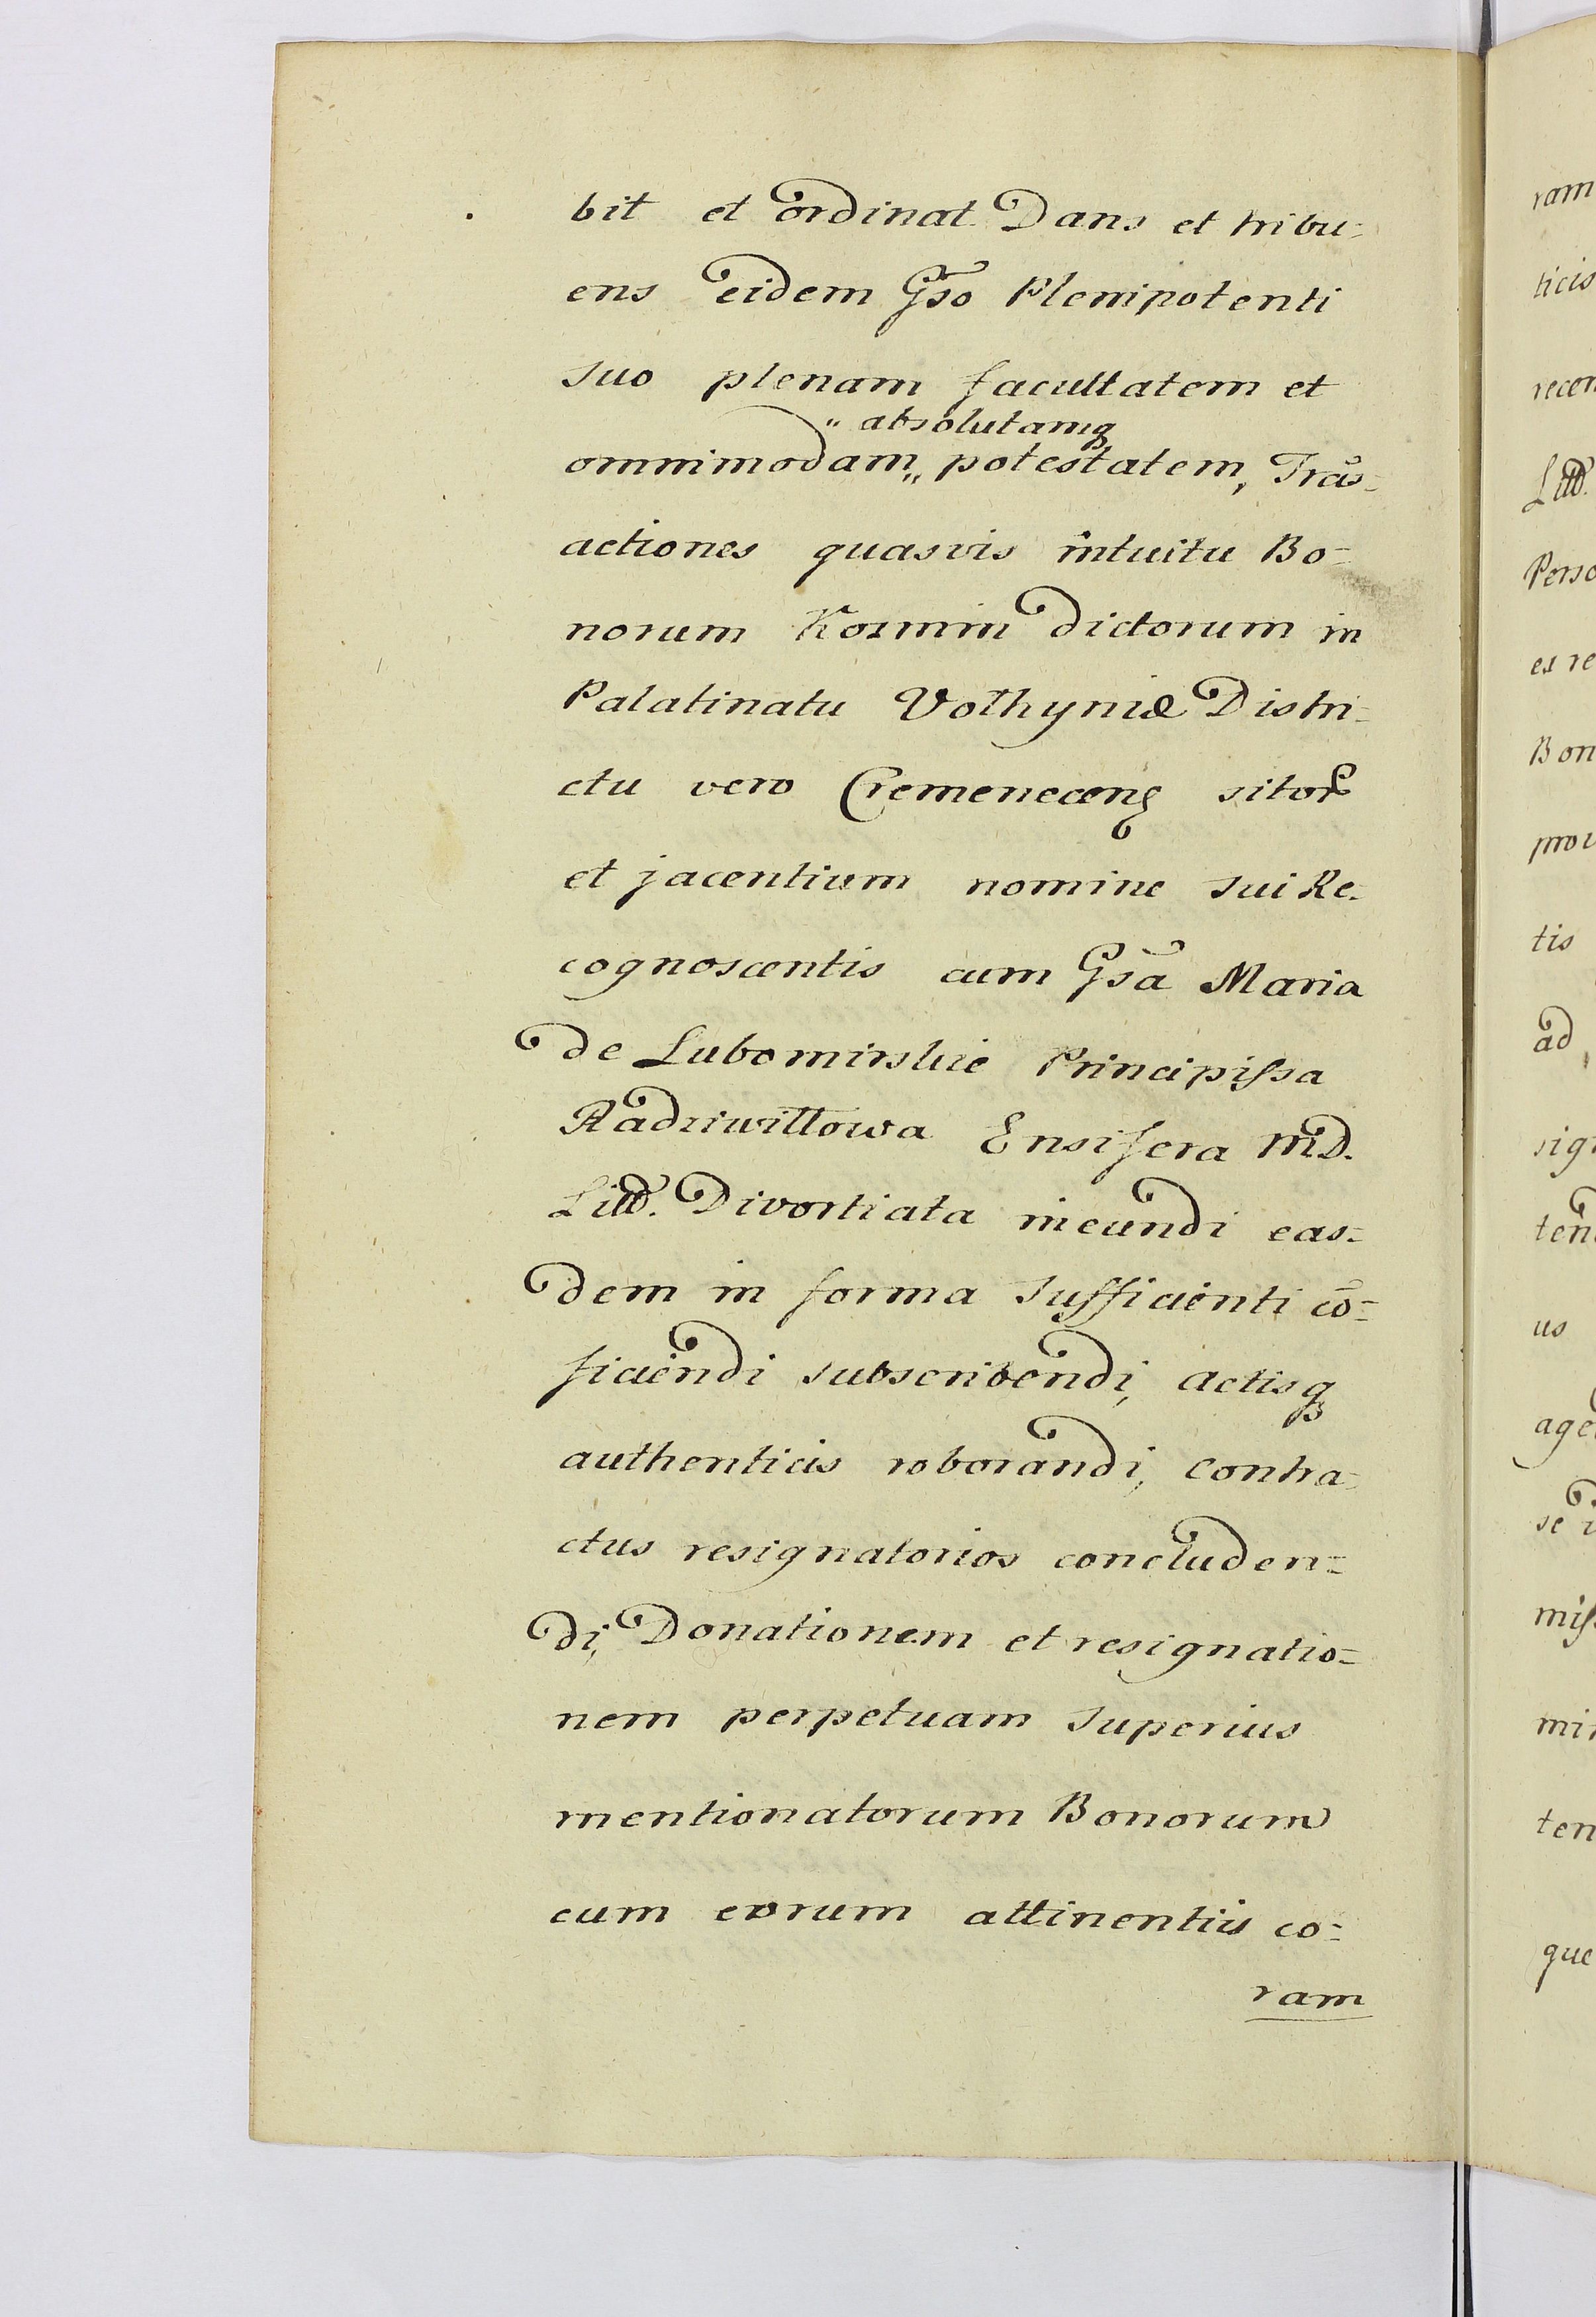 bit et ordinat Dans et tribu=
ens eidem Gso Plenipotenti
suo plenam facultatem et
„ absolutamq3
omnimodam „ potestatem, Trãs=
actiones quasvis intuitu Bo=
norum Kozmin dictorum in
Palatinatu Volhyniæ Distri=
ctu vero Cremenecenꝭ sitorꝭ
et jacentium nomine sui Re=
cognoscentis cum Gsa Maria
de Lubomirskie Principissa
Radziwiłłowa Ensifera M.D.
Littd. Divortiata ineundi eas=
dem in forma sufficienti cõ=
ficiendi subscribendi, actisq3
authenticis roborandi, contra=
ctus resignatorios concluden=
di, Donationem et resignatio=
nem perpetuam superius
mentionatorum Bonorum
cum eorum attinentiis co=
ram
ram
ticis
Littd.
Perso
es re
Bon
tis
ad
us
que